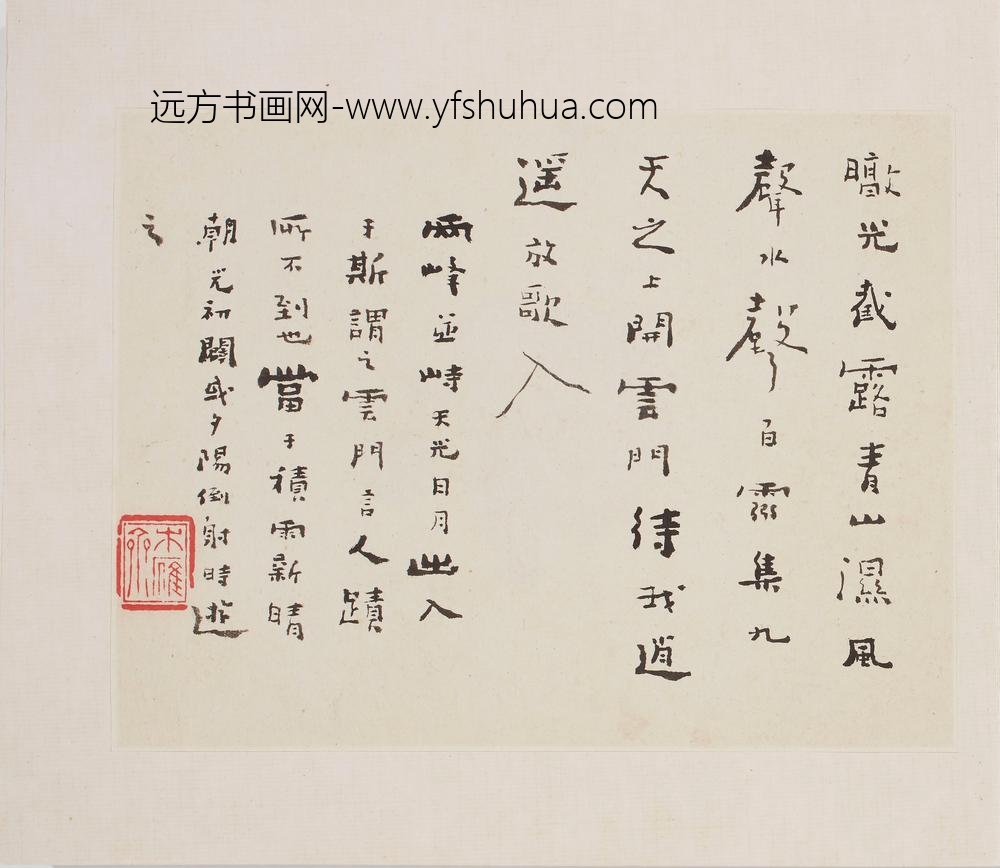 远方书画网-www.yfshuhua.com
曒光截露青山濕風
聲水聲百靈集九
天之上開雲門待我逍
遥放歌入
兩峰並峙天光日月出入
于斯謂之雲門言人蹟
所不到也當于積雨新晴
朝光初闢或夕陽倒射時遊
之